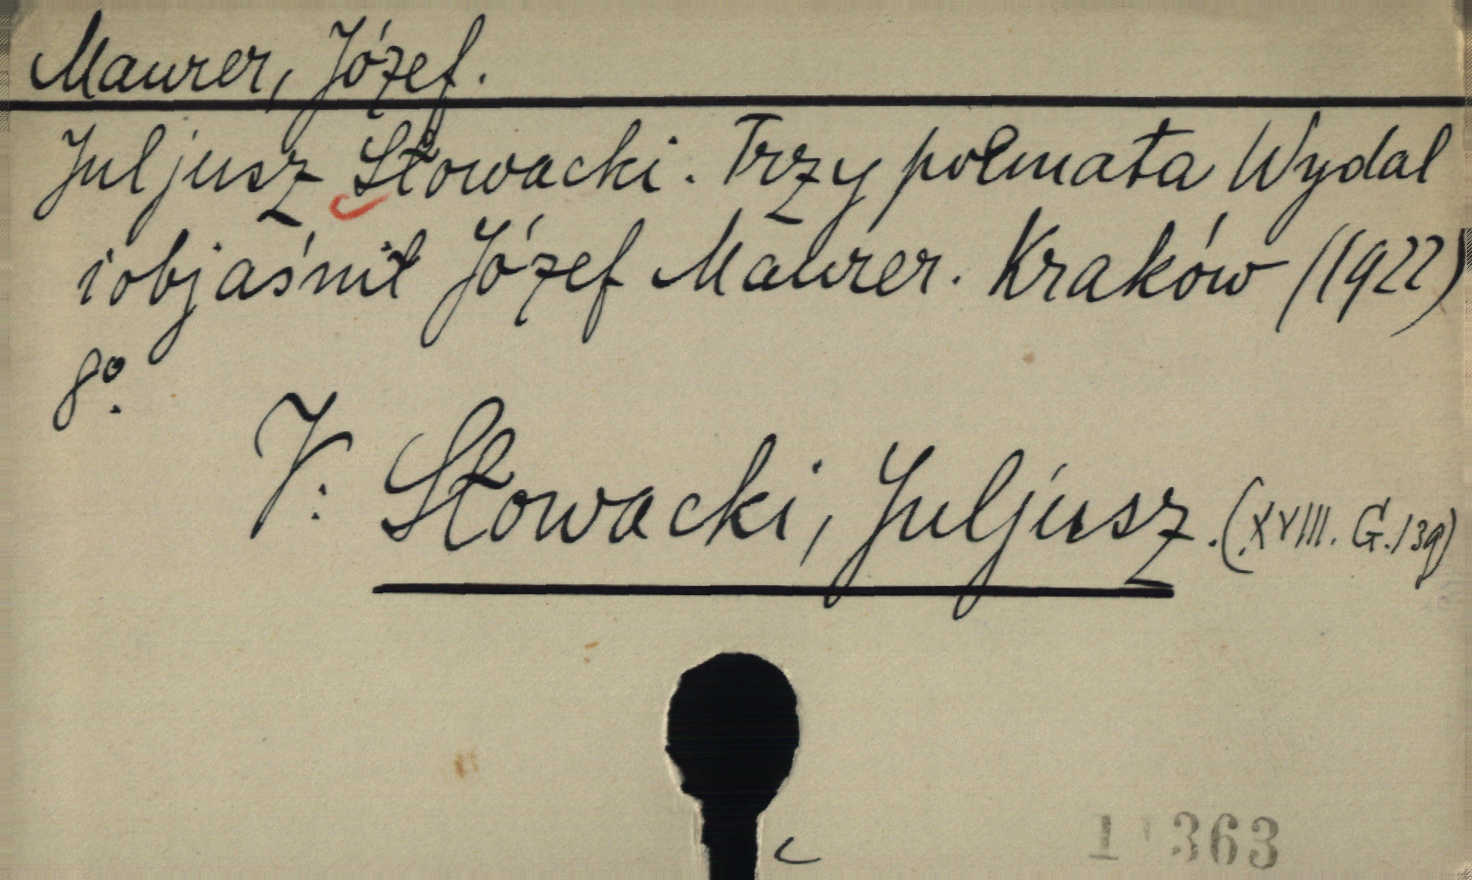 Maurer, Józef.
Juljusz Słowacki. Trzy poemata Wydal
i objaśnił Józef Maurer. Kraków (1922)
8º.
V: Słowacki, Juljusz. (XVIII. G. 139)
1 363